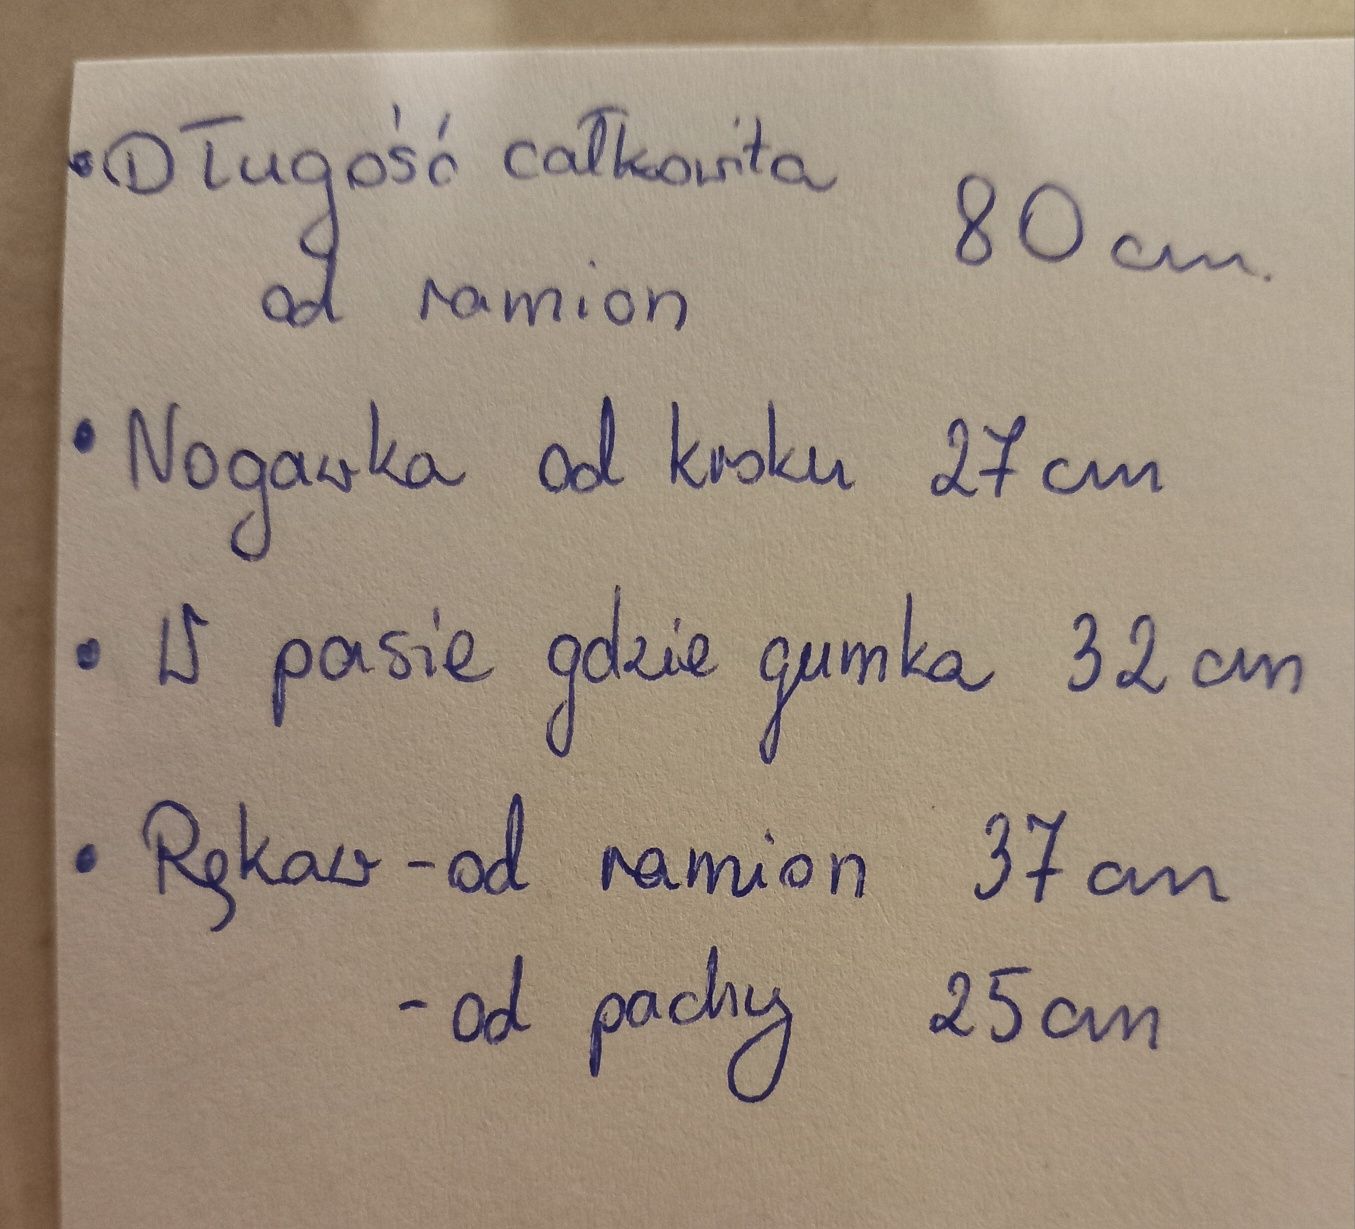 • Długość całkowita 80 cm.
od ramion
• Nogawka od kroku 27 cm
• W pasie gdzie gumka 32 cm
• Rękaw - od ramion 37 cm
- od pachy 25 cm